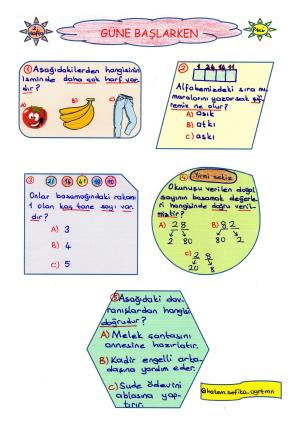 GÜNE BAŞLARKEN
1 Aşağıdakilerden hangisinin
isminde daha çok harf var-
dır?
A)
B)
C)
2
1 24 14 11
Alfabemizdeki sıra nu-
maralarını yazarsak şif-
remiz ne olur?
A) aşık
B) atkı
C) askı
3
Onlar basamağındaki rakamı
1 olan kaç tane sayı var-
dır?
A) 3
B) 4
C) 5
4 Yirmi sekiz
Okunuşu verilen doğal
sayının basamak değerle-
ri hangisinde doğru veril-
miştir?
A) 2 8
2 80
B) 8 2
80 2
C) 2 8
20 8
5 Aşağıdaki dav-
ranışlardan hangisi
doğrudur?
A) Melek çantasını
annesine hazırlatır.
B) Kadir engelli arka-
daşına yardım eder.
C) Sude ödevini
ablasına yap-
tırır.